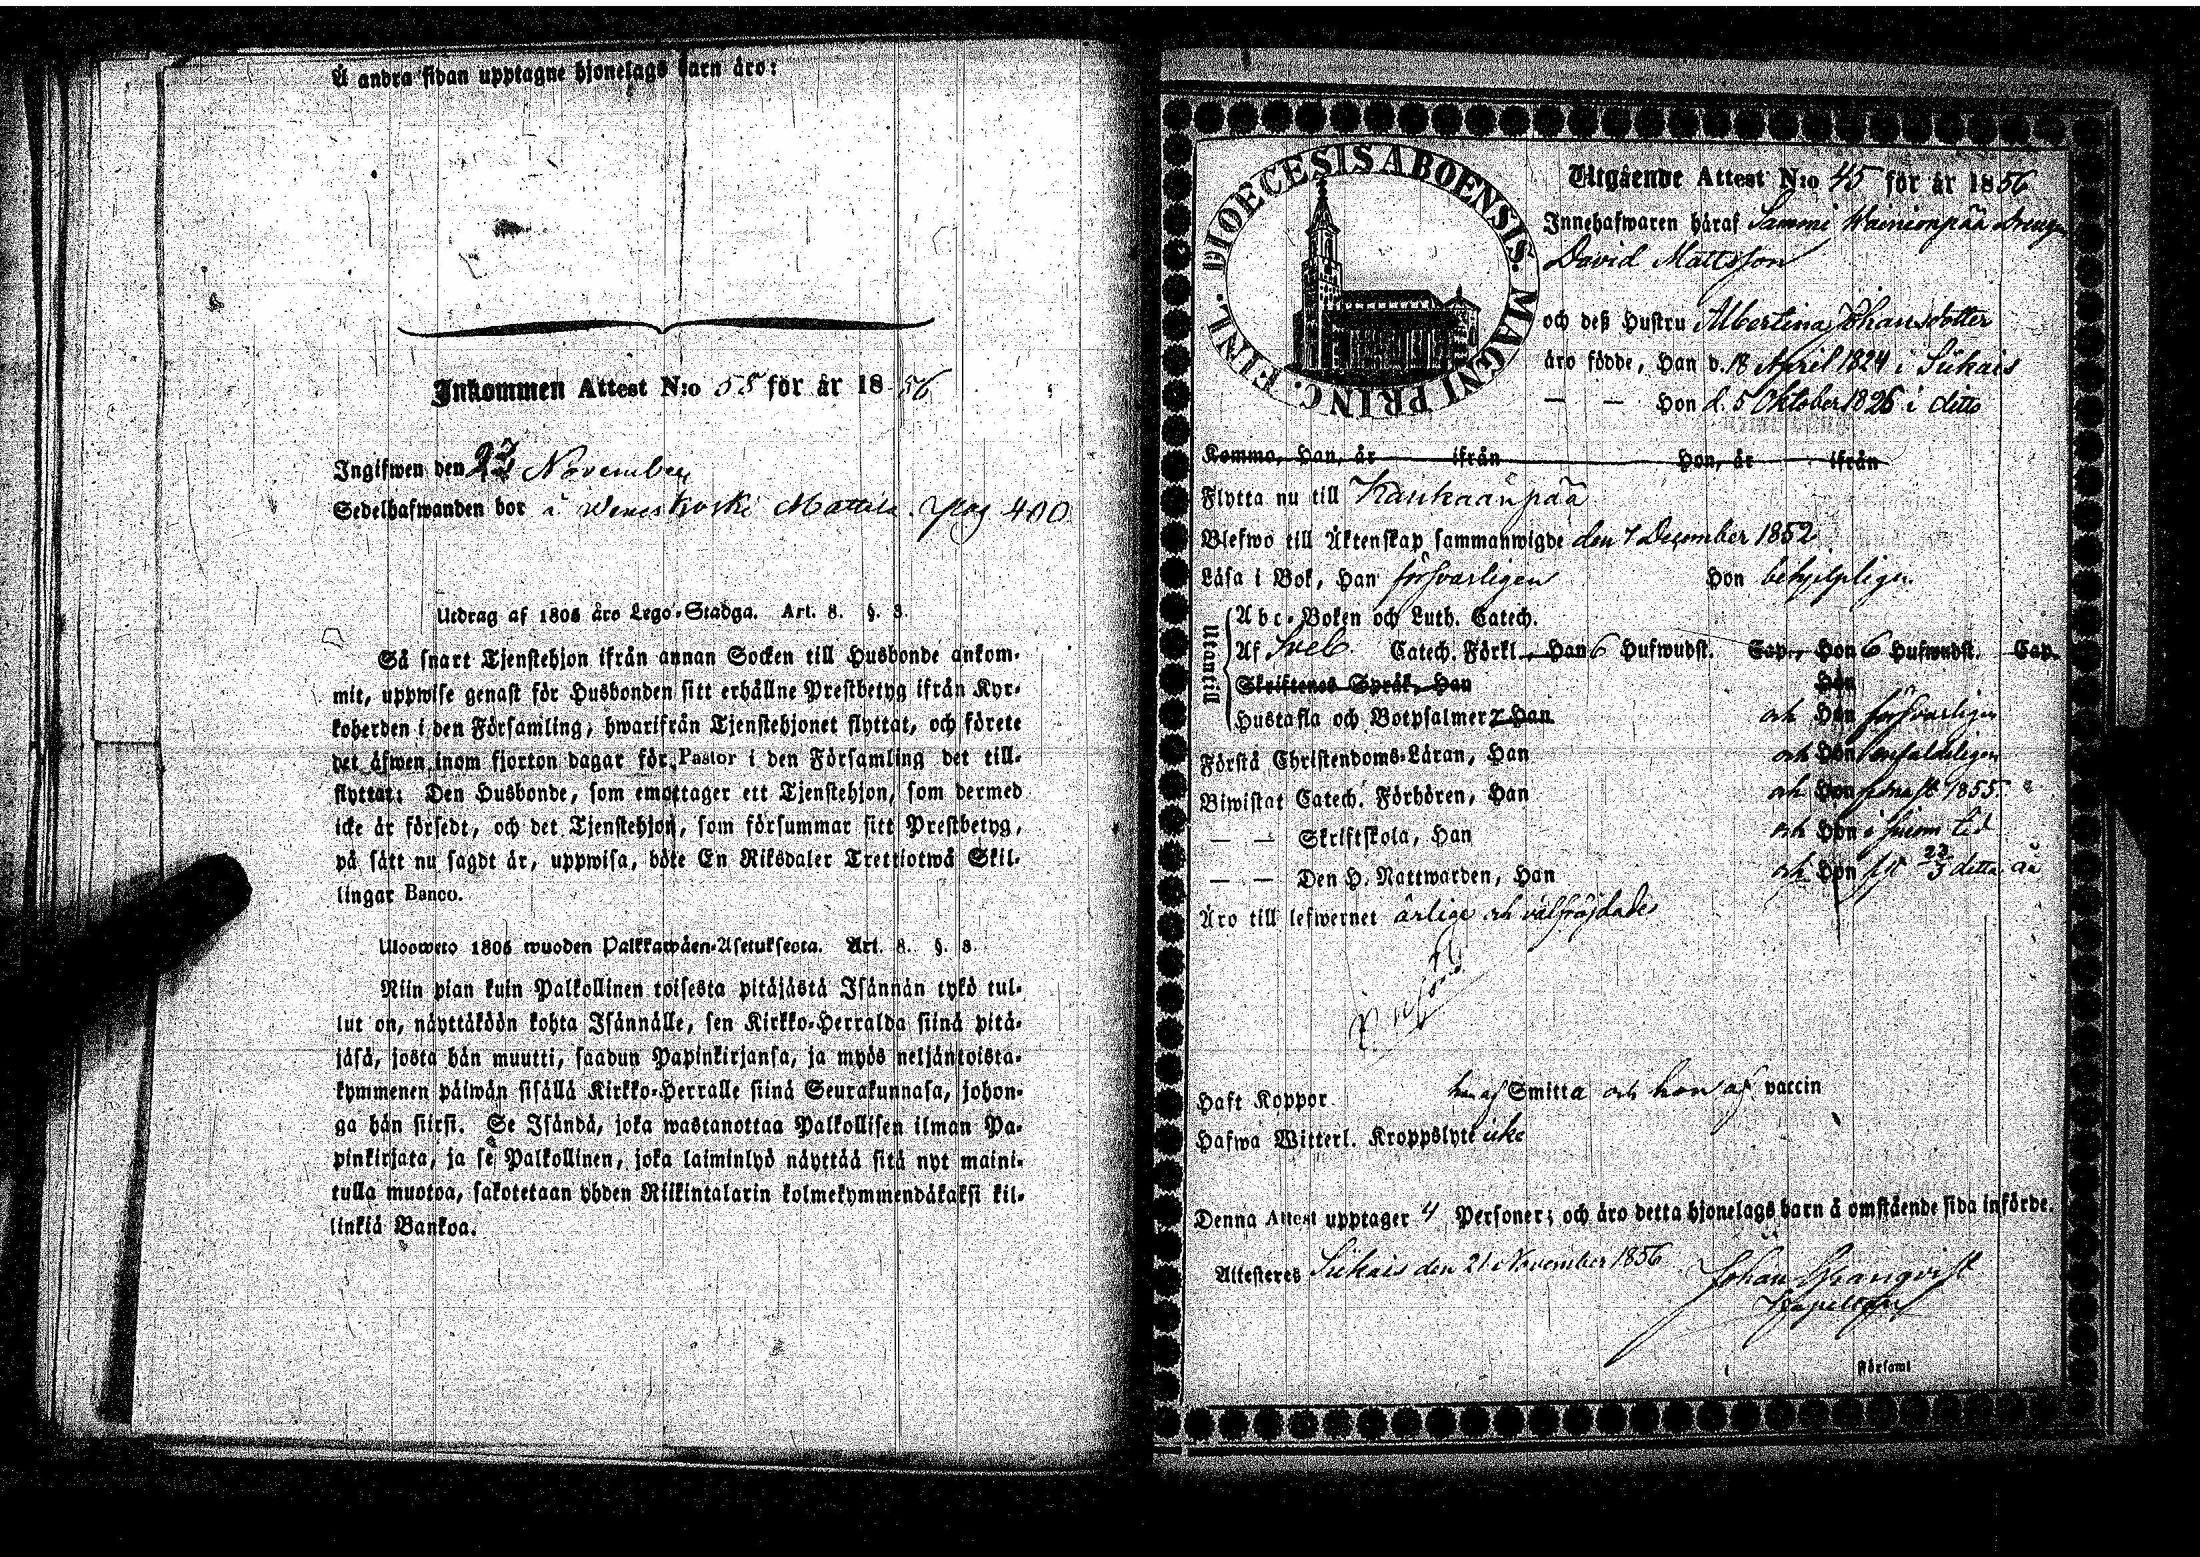 Å andra sidan upptagne hjonelags barn äro:
Inkommen Attest N:o 55 för år 1856
Ingifwen den 23 November
Sedelhafwanden bor i Weneskoski Mattila. pag 400
Utdrag af 1805 års Lego-Stadga. Art. 8. §. 8.
Så snart Tjenstehjon ifrån annan Socken till Husbonde ankom-
mit, uppwise genast för Husbonden sitt erhållne Prestbetyg ifrån Kyr-
koherden i den Församling, hwarifrån Tjenstehjonet flyttat, och förete
det äfwen inom fjorton dagar för Pastor i den Församling det till-
flyttat: Den Husbonde, som emottager ett Tjenstehjon, som dermed
icke är försedt, och det Tjenstehjon, som försummar sitt Prestbetyg,
på sätt nu sagdt är, uppwisa, böte En Riksdaler Trettiotwå Skil-
lingar Banco.
Ulosweto 1805 wuoden Palkkawäen-Asetuksesta. Art. 8. §. 8.
Niin pian kuin Palkollinen toisesta pitäjästä Isännän tykö tul-
lut on, näyttäköön kohta Isännälle, sen Kirkko-Herralda siinä pitä-
jäsä, josta hän muutti, saadun Papinkirjansa, ja myös neljäntoista-
kymmenen päiwän sisällä Kirkko-Herralle siinä Seurakunnasa, johon-
ga hän siirsi. Se Isändä, joka wastanottaa Palkollisen ilman Pa-
pinkirjata, ja se Palkollinen, joka laiminlyö näyttää sitä nyt maini-
tulla muotoa, sakotetaan yhden Riikintalarin kolmekymmendäkaksi kil-
linkiä Bankoa.
DIOECESIS ABOENSIS. MAGNI PRINC. FINL.
Utgående Attest N:o 45 för år 1856
Innehafwaren häraf Sammi Wainionpää dreng
David Mattsson
och deß Hustru Albertina Johansdotter
äro födde, Han d. 18 April 1824 i Siikais
— — Hon d. 5 Oktober 1826 i ditto
Komma, Han, år ifrån Hon, år ifrån
Flytta nu till Kankaanpää
Blefwo till Äktenskap sammanwigde den 7 December 1852
Läsa i Bok, Han försvarligen Hon behjelpligen
Utantill
Abc-Boken och Luth. Catech.
Af Sveb. Catech. Förkl. Han 6 Hufwudst. Cap., Hon 6 Hufwudst. Cap.
Skriftenes Språk, Han Hon
Hustafla och Botpsalmer, Han och Hon försvarligen
Förstå Christendoms-Läran, Han och Hon enfaldeligen
Biwistat Catech. Förhören, Han och Hon sednast 1855
— — Skriftskola, Han och Hon i sinom tid
— — Den H. Nattwarden, Han och Hon 23/3 detta år
Äro till lefwernet ärlige och välfräjdade
Haft Koppor han af Smitta och hon af vaccin
Hafwa Witterl. Kroppslyte icke
Denna Attest upptager 4 Personer; och äro detta hjonelags barn å omstående sida införde.
Attesteres Siikais den 21 November 1856
Johan Granqvist
Kapellan
Församl